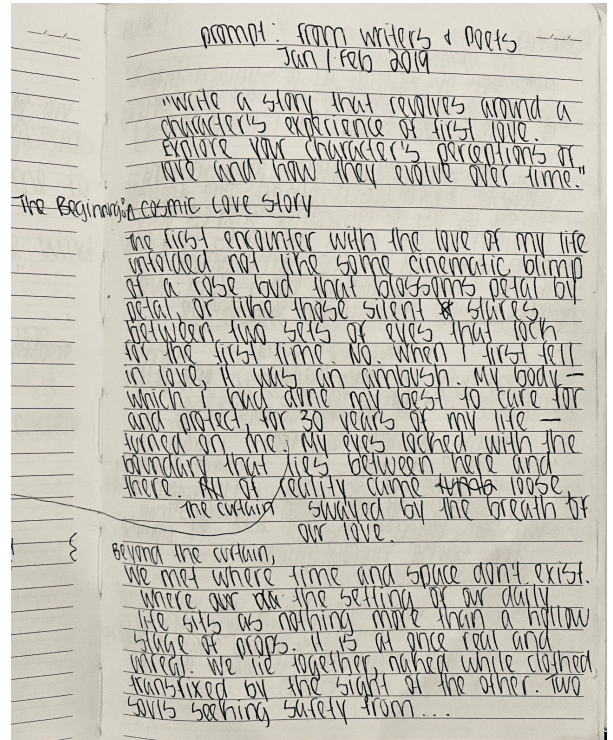 prompt: from writers & poets
Jan / Feb 2019
"write a story that revolves around a
character's experience of first love.
Explore your character's perceptions of
love and how they evolve over time."
The Beginning: A cosmic love story
The first encounter with the love of my life
unfolded not like some cinematic blimp
of a rose bud that blossoms petal by
petal, or like those silent stares
between two sets of eyes that lock
for the first time. No. When I first fell
in love, it was an ambush. My body —
which I had done my best to care for
and protect, for 30 years of my life —
turned on me. My eyes locked with the
boundary that lies between here and
there. All of reality came loose.
The curtain swayed by the breath of
our love.
Beyond the curtain,
We met where time and space don't exist.
Where our the setting of our daily
life sits as nothing more than a hollow
stage of props. It is at once real and
unreal. We lie together, naked while clothed,
transfixed by the sight of the other. Two
souls seeking safety from...